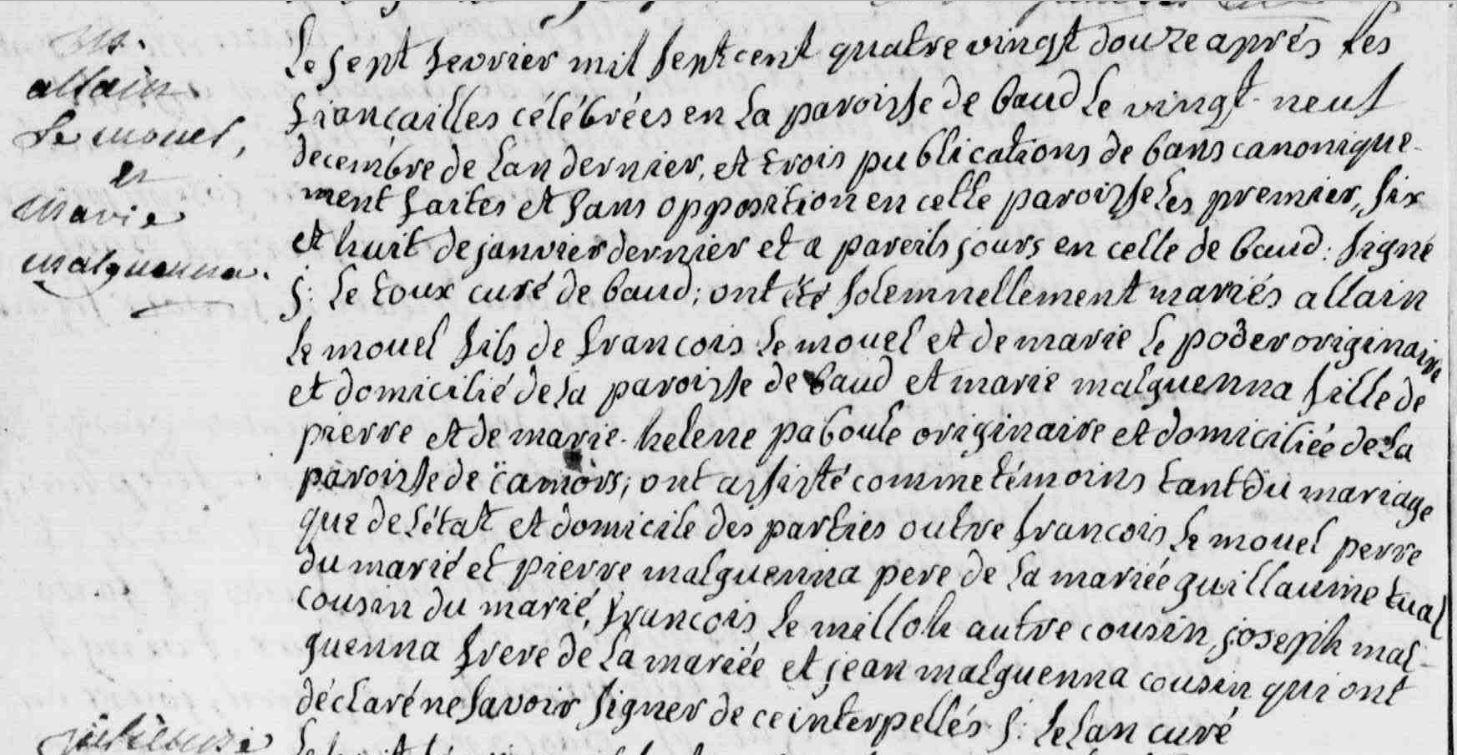 allain
Le mouel,
et
marie
malguenna.
Le sept fevrier mil sept cent quatre vingt douze aprés les
fiancailles célébrées en la paroisse de baud le vingt-neuf
decembre de lan dernier, et trois publications de bans canonique-
ment faites et sans opposition en celle paroisse les premier, six
et huit de janvier dernier et a pareils jours en celle de baud: signé
j: Le toux curé de baud; ont été solemnellement mariés allain
le mouel fils de francois Le mouel et de marie Le pozer originaire
et domicilié de la paroisse de baud et marie malguenna fille de
pierre et de marie-helene paboule originaire et domiciliée de la
paroisse de camors; ont assisté comme témoins tant du mariage
que de l'état et domicile des parties outre francois Le mouel perre
du marié et pierre malguenna pere de la mariée guillaume tual
cousin du marié, francois Le milloh autre cousin, joseph mal-
guenna frere de la mariée et jean malguenna cousin qui ont
déclaré ne savoir signer de ce interpellés j: Le lan curé